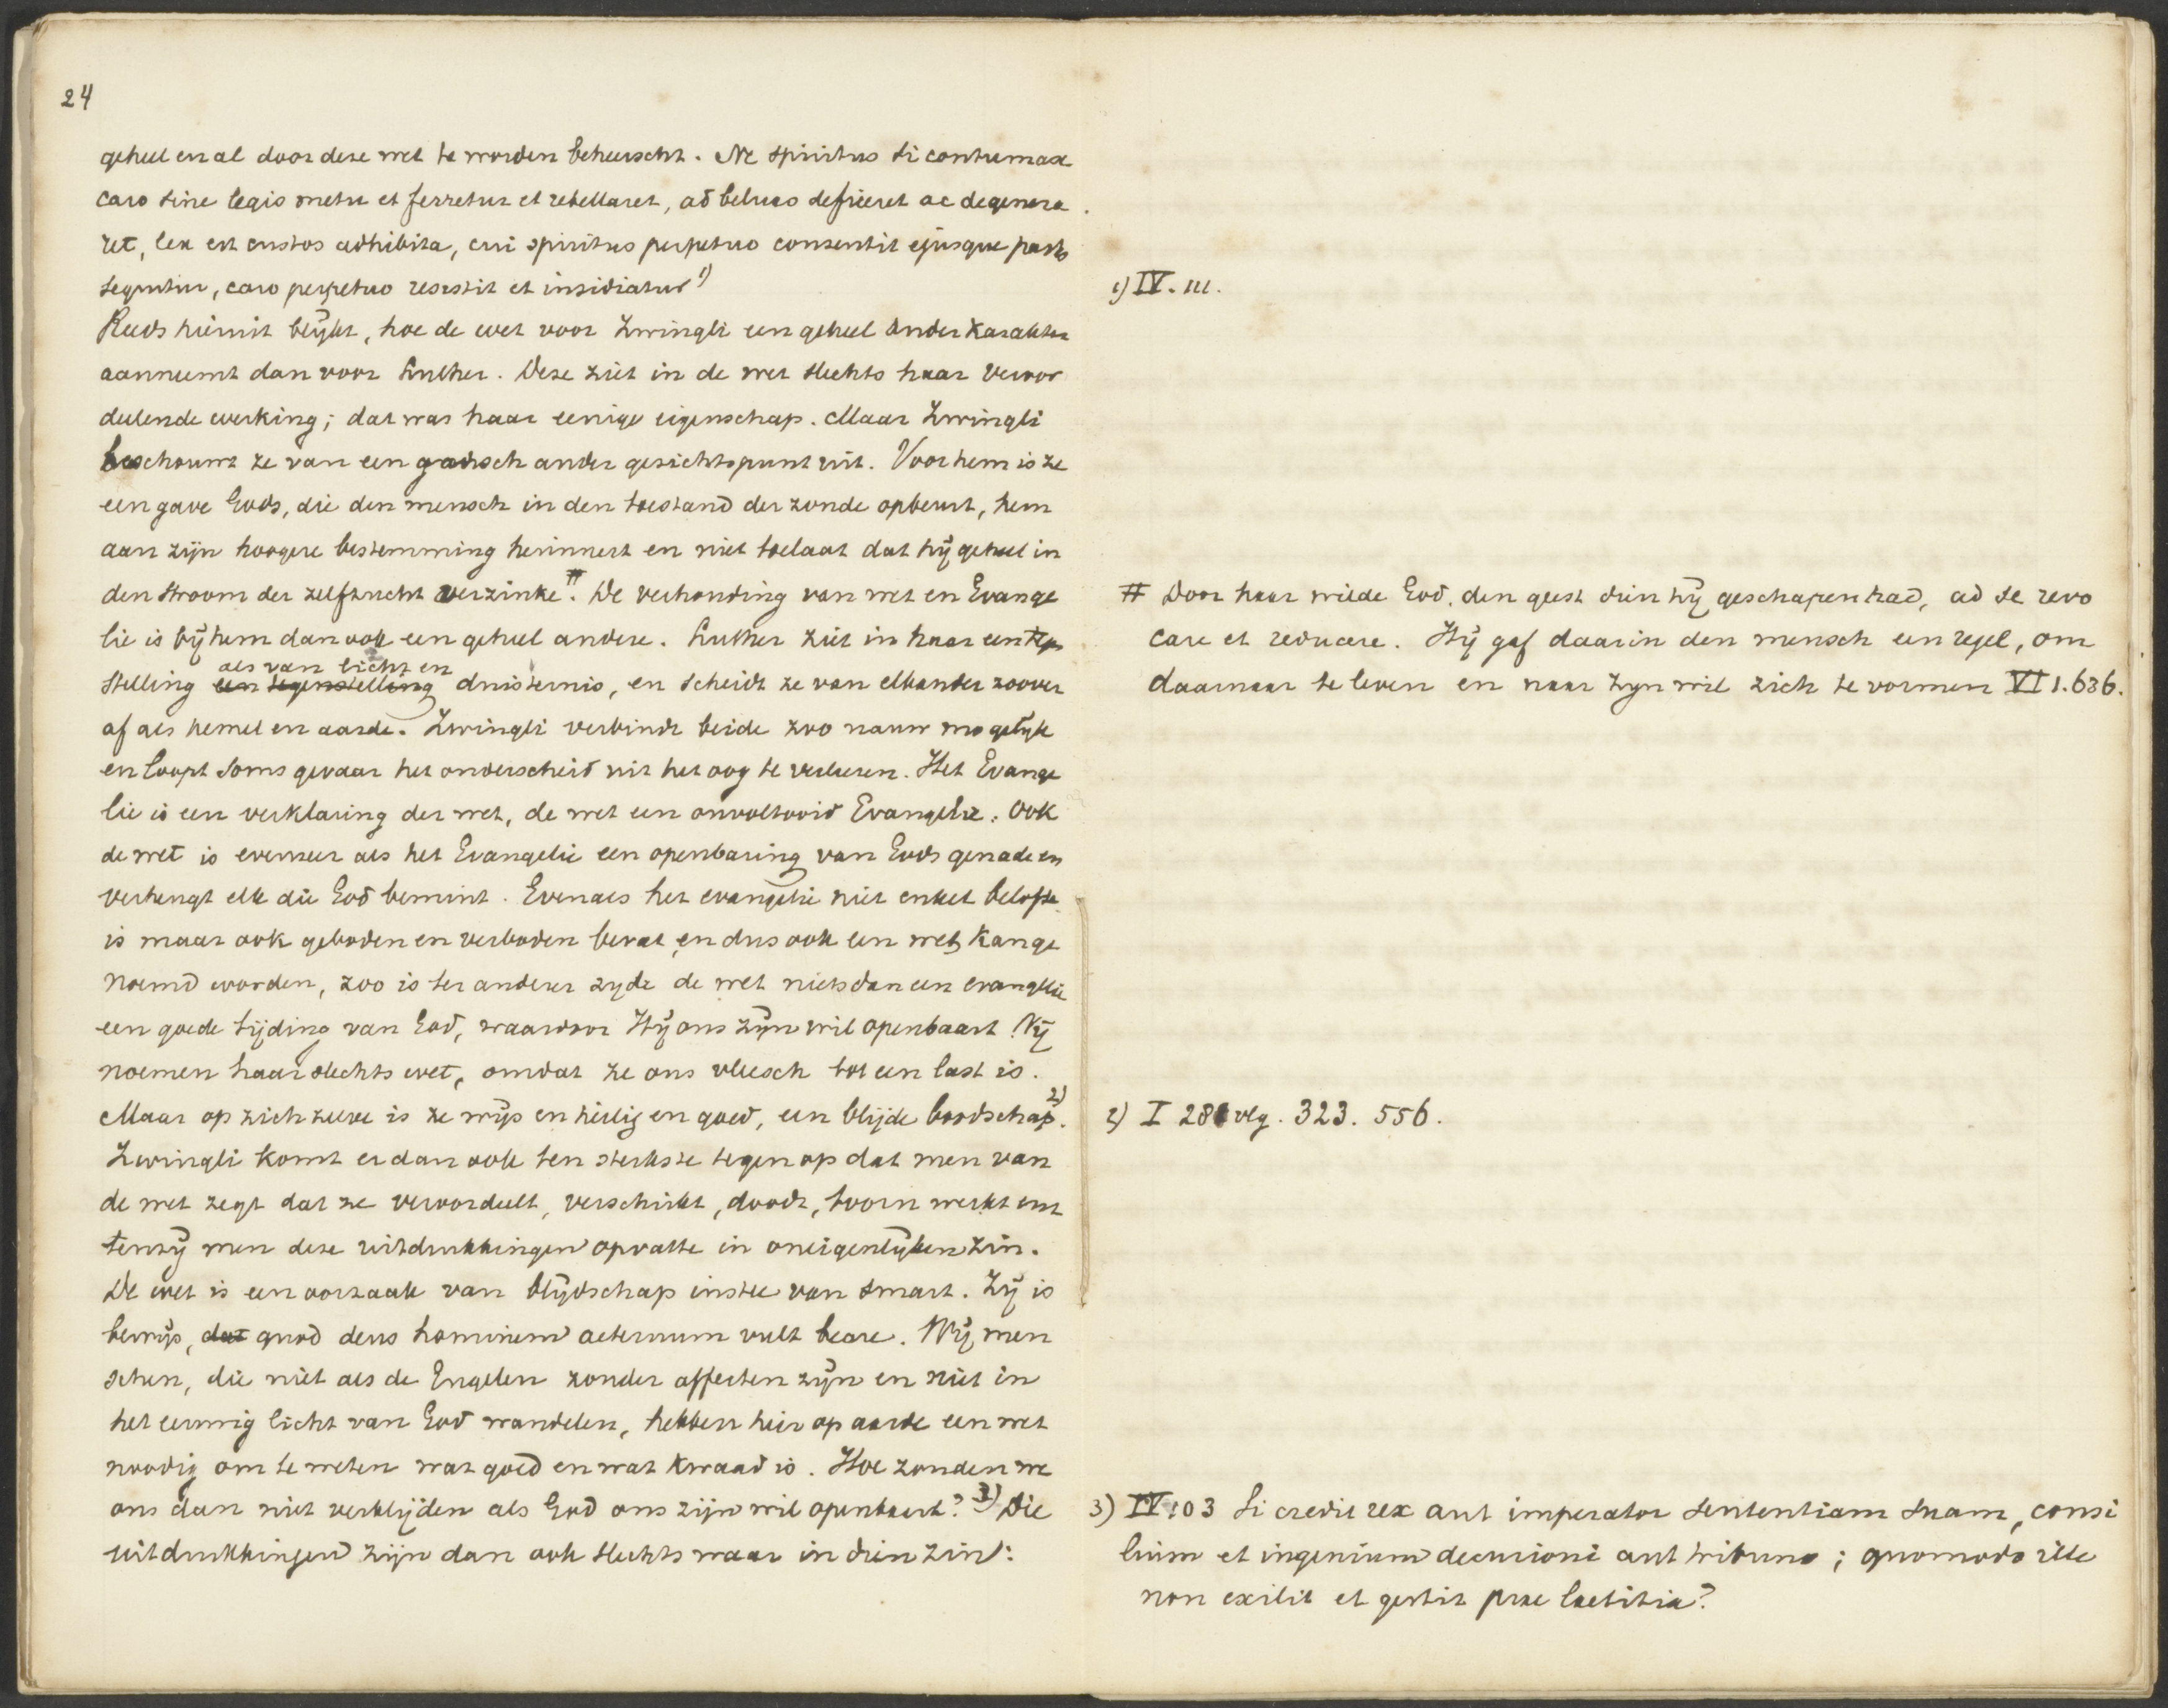 24
geheel en al door deze wet te worden beheerscht. Ne spiritus si contumax
caro sine legis metu et ferretur et rebellaret, ad beluas deficeret ac degenera
ret, lex est custos adhibita, cui spiritus perpetuo consentit ejusque partes
sequitur, caro perpetuo resistit et insidiatur 1)
Reeds hieruit blijkt, hoe de wet voor Zwingli een geheel ander karakter
aanneemt dan voor Luther. Deze ziet in de wet slechts haar veroor
deelende werking; dat was haar eenige eigenschap. Maar Zwingli
beschouwt ze van een gansch ander gezichtspunt uit. Voor hem is ze
een gave Gods, die den mensch in den toestand der zonde opbeurt, hem
aan zijn hoogere bestemming herinnert en niet toelaat dat hij geheel in
den stroom der zelfzucht verzinke #. De verhouding van wet en Evange
lie is bij hem dan ook een geheel andere. Luther ziet in haar een tegen
stelling een tegenstelling als van licht en duisternis, en scheidt ze van elkander zoover
af als hemel en aarde. Zwingli verbindt beide zoo nauw mogelijk
en loopt soms gevaar het onderscheid uit het oog te verliezen. Het Evange
lie is een verklaring der wet, de wet een onvoltooid Evangelie. Ook
de wet is evenzeer als het Evangelie een openbaring van Gods genade en
verheugt elk die God bemint. Evenals het evangelie niet enkel belofte
is maar ook geboden en verboden bevat, en dus ook een wet kan ge
noemd worden, zoo is ter anderer zyde de wet niets dan een evangelie
een goede tijding van God, waardoor Hij ons zijn wil openbaart. Wij
noemen haar slechts wet, omdat ze ons vleesch tot een last is.
Maar op zich zelve is ze wijs en heilig en goed, een blijde boodschap. 2)
Zwingli komt er dan ook ten sterkste tegen op dat men van
de wet zegt dat ze veroordeelt, verschrikt, doodt, toorn werkt enz
tenzij men deze uitdrukkingen opvatte in oneigenlijken zin.
De wet is een oorzaak van blijdschap instee van smart. Zij is
bewijs, dat quod deus hominem aeternum vult beare. Wij men
schen, die niet als de Engelen zonder affecten zijn en niet in
het eeuwig licht van God wandelen, hebben hier op aarde een wet
noodig om te weten wat goed en wat kwaad is. Hoe zouden we
ons dan niet verblijden als God ons zijn wil openbaart? 3) Die
uitdrukkingen zijn dan ook slechts waar in dien zin:
1) IV. 111.
# Door haar wilde God, den geest dien hij geschapen had, ad se revo
care et reducere. Hij gaf daarin den mensch een regel, om
daarnaar te leven en naar zyn wil zich te vormen VI 1. 636.
2) I 281 vlg. 323. 556.
3) IV 103 Si credit rex aut imperator sententiam suam, consi
lium et ingenium decurioni aut tribuno; quomodo ille
non exilit et gestit prae laetitia?